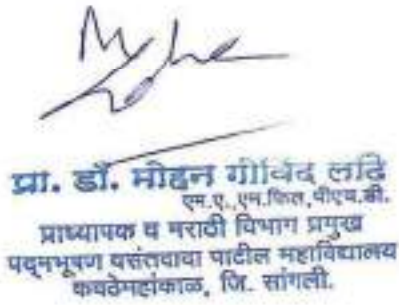 प्रा. डॉ. मोहन गोविंद लढि
एम.ए.,एम.फिल,पीएच.डी.
प्राध्यापक व मराठी विभाग प्रमुख
पद्मभूषण वसंतदादा पाटील महाविद्यालय
कवठेमहांकाळ, जि. सांगली.